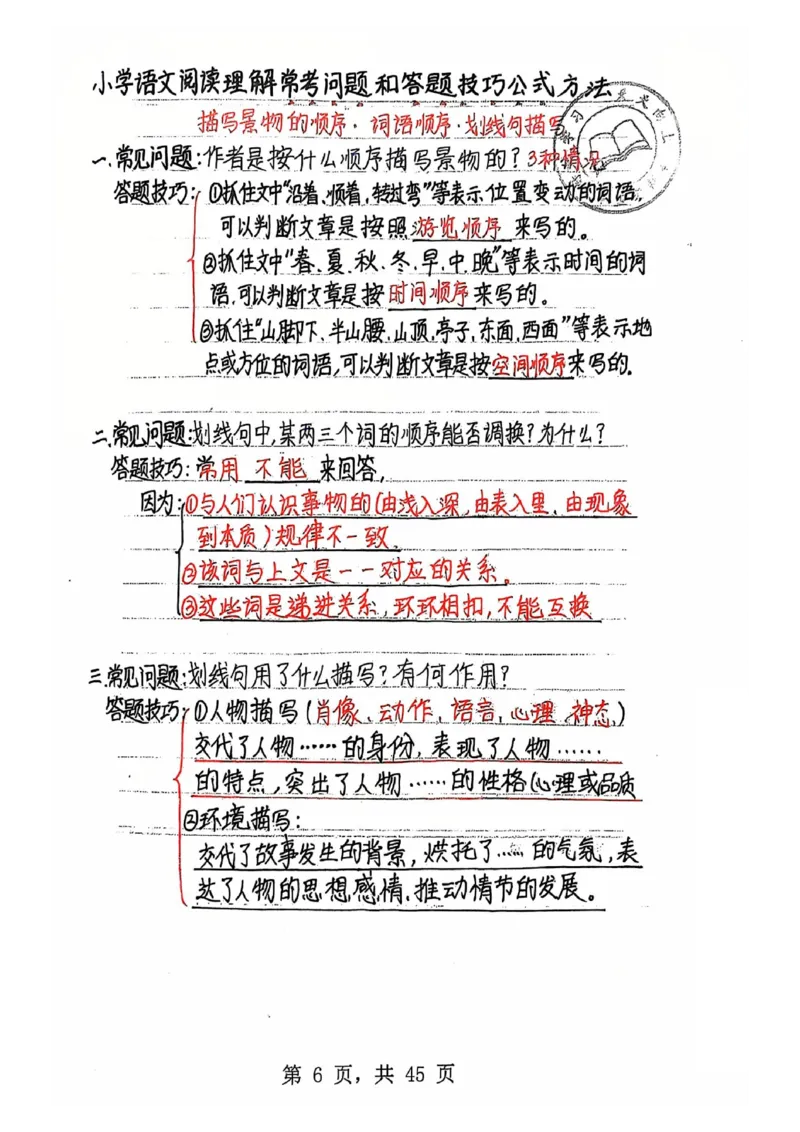 小学语文阅读理解常考问题和答题技巧公式方法
描写景物的顺序·词语顺序·划线句描写
一.常见问题:作者是按什么顺序描写景物的?3种情况
答题技巧:①抓住文中"沿着、顺着,转过弯"等表示位置变动的词语,
可以判断文章是按照游览顺序来写的。
②抓住文中"春、夏、秋、冬、早、中、晚"等表示时间的词
语,可以判断文章是按时间顺序来写的。
③抓住"山脚下、半山腰、山顶,亭子,东面,西面"等表示地
点或方位的词语,可以判断文章是按空间顺序来写的。
二.常见问题:划线句中,某两三个词的顺序能否调换?为什么?
答题技巧:常用 不能 来回答,
因为:①与人们认识事物的(由浅入深、由表入里、由现象
到本质)规律不一致、
②该词与上文是一一对应的关系。
③这些词是递进关系,环环相扣,不能互换
三.常见问题:划线句用了什么描写?有何作用?
答题技巧:①人物描写(肖像、动作、语言、心理、神态)
交代了人物……的身份,表现了人物……
的特点,突出了人物……的性格(心理或品质
②环境描写:
交代了故事发生的背景,烘托了……的气氛,表
达了人物的思想感情,推动情节的发展。
第 6 页,共 45 页